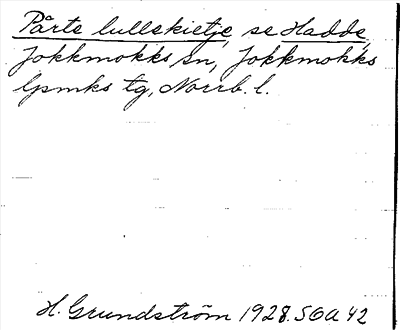 Pårte lullskietje, se Hadde,
Jokkmokks sn, Jokkmokks
lpmks tg, Norrb. l.
H. Grundström 1928. SOA 42